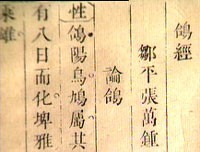 鴿經
鄒平張萬鍾
論鴿
性
鴿陽鳥鳩屬其
有八日而化埤雅
乘雌